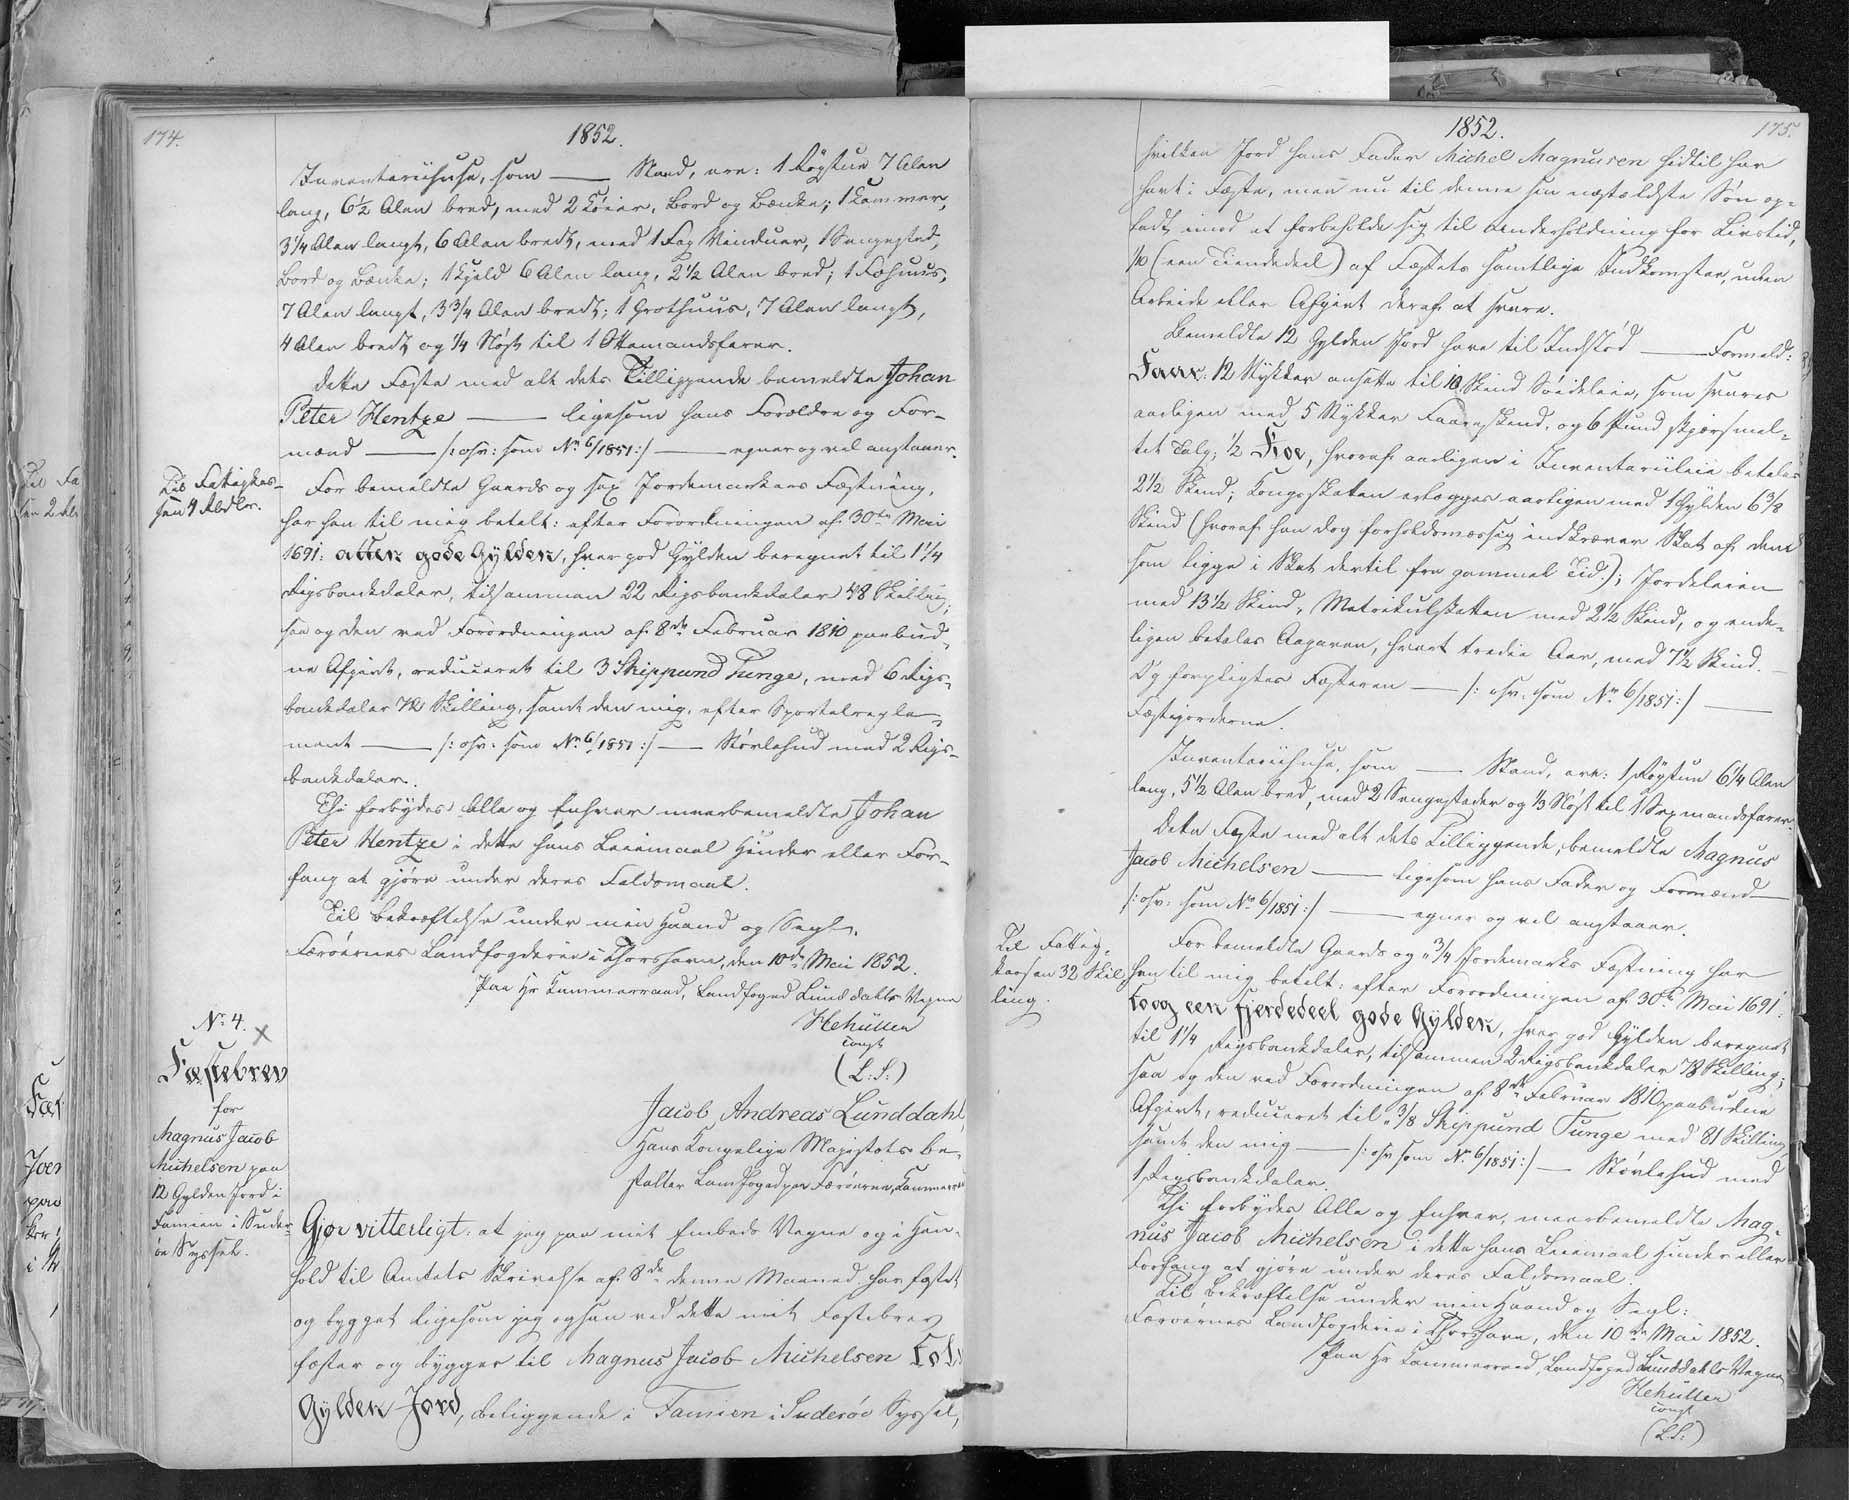 174.
1852.
Inventariihuse, som — Stand, ere: 1 Røgstue 7 Alen
lang, 6½ Alen bred, med 2 Køier, Bord og Bænke; 1 Kammer,
3¼ Alen langt, 6 Alen bredt, med 1 Fag Vinduer, 1 Sengested,
Bord og Bænke; 1 Hjeld 6 Alen lang, 2½ Alen bred; 1 Fæhuus,
7 Alen langt, 3¾ Alen bredt; 1 Grothuus, 7 Alen langt,
4 Alen bredt og ¼ Nøst til 1 Ottemandsfarer.
Dette Fæste med alt dets Tilliggende bemeldte Johan
Peter Hentze — ligesom hans Forældre og For-
mænd — /: osv: som No 6/1851 :/ — egner og vel anstaaer.
Til Fattigkas-
sen 4 Rbdlr.
For bemeldte Gaards og sex Jordemarkers Fæstning,
har han til mig betalt: efter Forordningen af 30te Mai
1691: atten gode Gylden, hver god Gylden beregnet til 1¼
Rigsbankdaler, tilsammen 22 Rigsbankdaler 48 Skilling;
saa og den ved Forordningen af 8de Februar 1810 paabud-
ne Afgivt, reduceret til 3 Skippund Tunge, med 6 Rigs-
bankdaler 72 Skilling, samt den mig, efter Sportelregle-
ment — /: osv: som No 6/1851 :/ — Støvlehud med 2 Rigs-
bankdaler.
Thi forbydes Alle og Enhver meerbemeldte Johan
Peter Hentze i dette hans Leiemaal Hinder eller For-
fang at gjøre under deres Faldsmaal.
Til Bekræftelse under min Haand og Segl.
Færøernes Landfogderie i Thorshavn, den 10de Mai 1852.
Paa Hr Kammerraad, Landfoged Lunddahls Vegne
const
(L: S:)
No 4. X
Fæstebrev
for
Magnus Jacob
Michelsen paa
12 Gylden Jord i
Famien i Suder-
øe Syssel.
Jacob Andreas Lunddahl,
Hans Kongelige Majestæts be-
stalter Landfoged paa Færøerne, Kammerraad
Gjør vitterligt: at jeg paa mit Embeds Vegne og i Hen-
hold til Amtets Skrivelse af 8de denne Maaned har fæstet
og bygget ligesom jeg ogsaa ved dette mit Fæstebrev
fæster og bygger til Magnus Jacob Michelsen Tolv
Gylden Jord, beliggende i Famien i Suderøe Syssel,
1852.
175.
hvilken Jord hans Fader Michel Magnusen hidtil har
havt i Fæste, men nu til denne sin næstældste Søn op-
ladt, imod at forbeholde sig til Underholdning for Livstid,
1/10 (een Tiendedeel) af Fæstets samtlige Indkomster, uden
Arbeide eller Afgivt deraf at svare.
Bemeldte 12 Gylden Jord have til Indstød — Formeld:
Faar: 12 Stykker ansatte til 10 Skind Søideleie, som svares
aarligen med 5 Stykker Faareskind, og 6 Pund skjørsmel-
tet Talg; ½ Koe, hvoraf aarligen i Inventariileie betales
2½ Skind; Kongsskatten erlægges aarligen med 1 Gylden 6⅜
Skind (hvoraf han dog forholdsmæssig indkræver Skat af dem
som ligge i Skat dertil fra gammel Tid.); Jordeleien
med 13½ Skind, Matrikulskatten med 2½ Skind, og ende-
ligen betales Aagaven, hvert tredie Aar, med 7½ Skind.
Og forpligtes Fæsteren — /: osv: som No 6/1851 :/ —
Fæstejorderne.
Inventariihuse, som — Stand, ere: 1 Røgstue 6¼ Alen
lang, 5½ Alen bred, med 2 Sengesteder og ⅓ Nøst til 1 Sexmandsfarer.
Dette Fæste med alt dets Tilliggende, bemeldte Magnus
Jacob Michelsen — ligesom hans Fader og Formænd —
/: osv: som No 6/1851 :/ — egner og vel anstaaer.
Til Fattig-
kassen 32 Skil-
ling.
For bemeldte Gaards og ¾ Jordemarks Fæstning har
han til mig betalt: efter Forordningen af 30te Mai 1691:
to og een fjerdedeel gode Gylden, hver god Gylden beregnet
til 1¼ Rigsbankdaler, tilsammen 2 Rigsbankdaler 78 Skilling;
saa og den ved Forordningen af 8de Februar 1810 paabudne
Afgivt, reduceret til ⅜ Skippund Tunge med 81 Skilling,
samt den mig — /: osv som No 6/1851 :/ — Støvlehud med
1 Rigsbankdaler.
Thi forbydes Alle og Enhver, meerbemeldte Mag-
nus Jacob Michelsen i dette hans Leiemaal Hinder eller
Forfang at gjøre under deres Faldsmaal.
Til Bekræftelse under min Haand og Segl:
Færøernes Landfogderie i Thorshavn, den 10de Mai 1852.
Paa Hr Kammerraad, Landfoged Lunddahls Vegne
const
(L.S.)